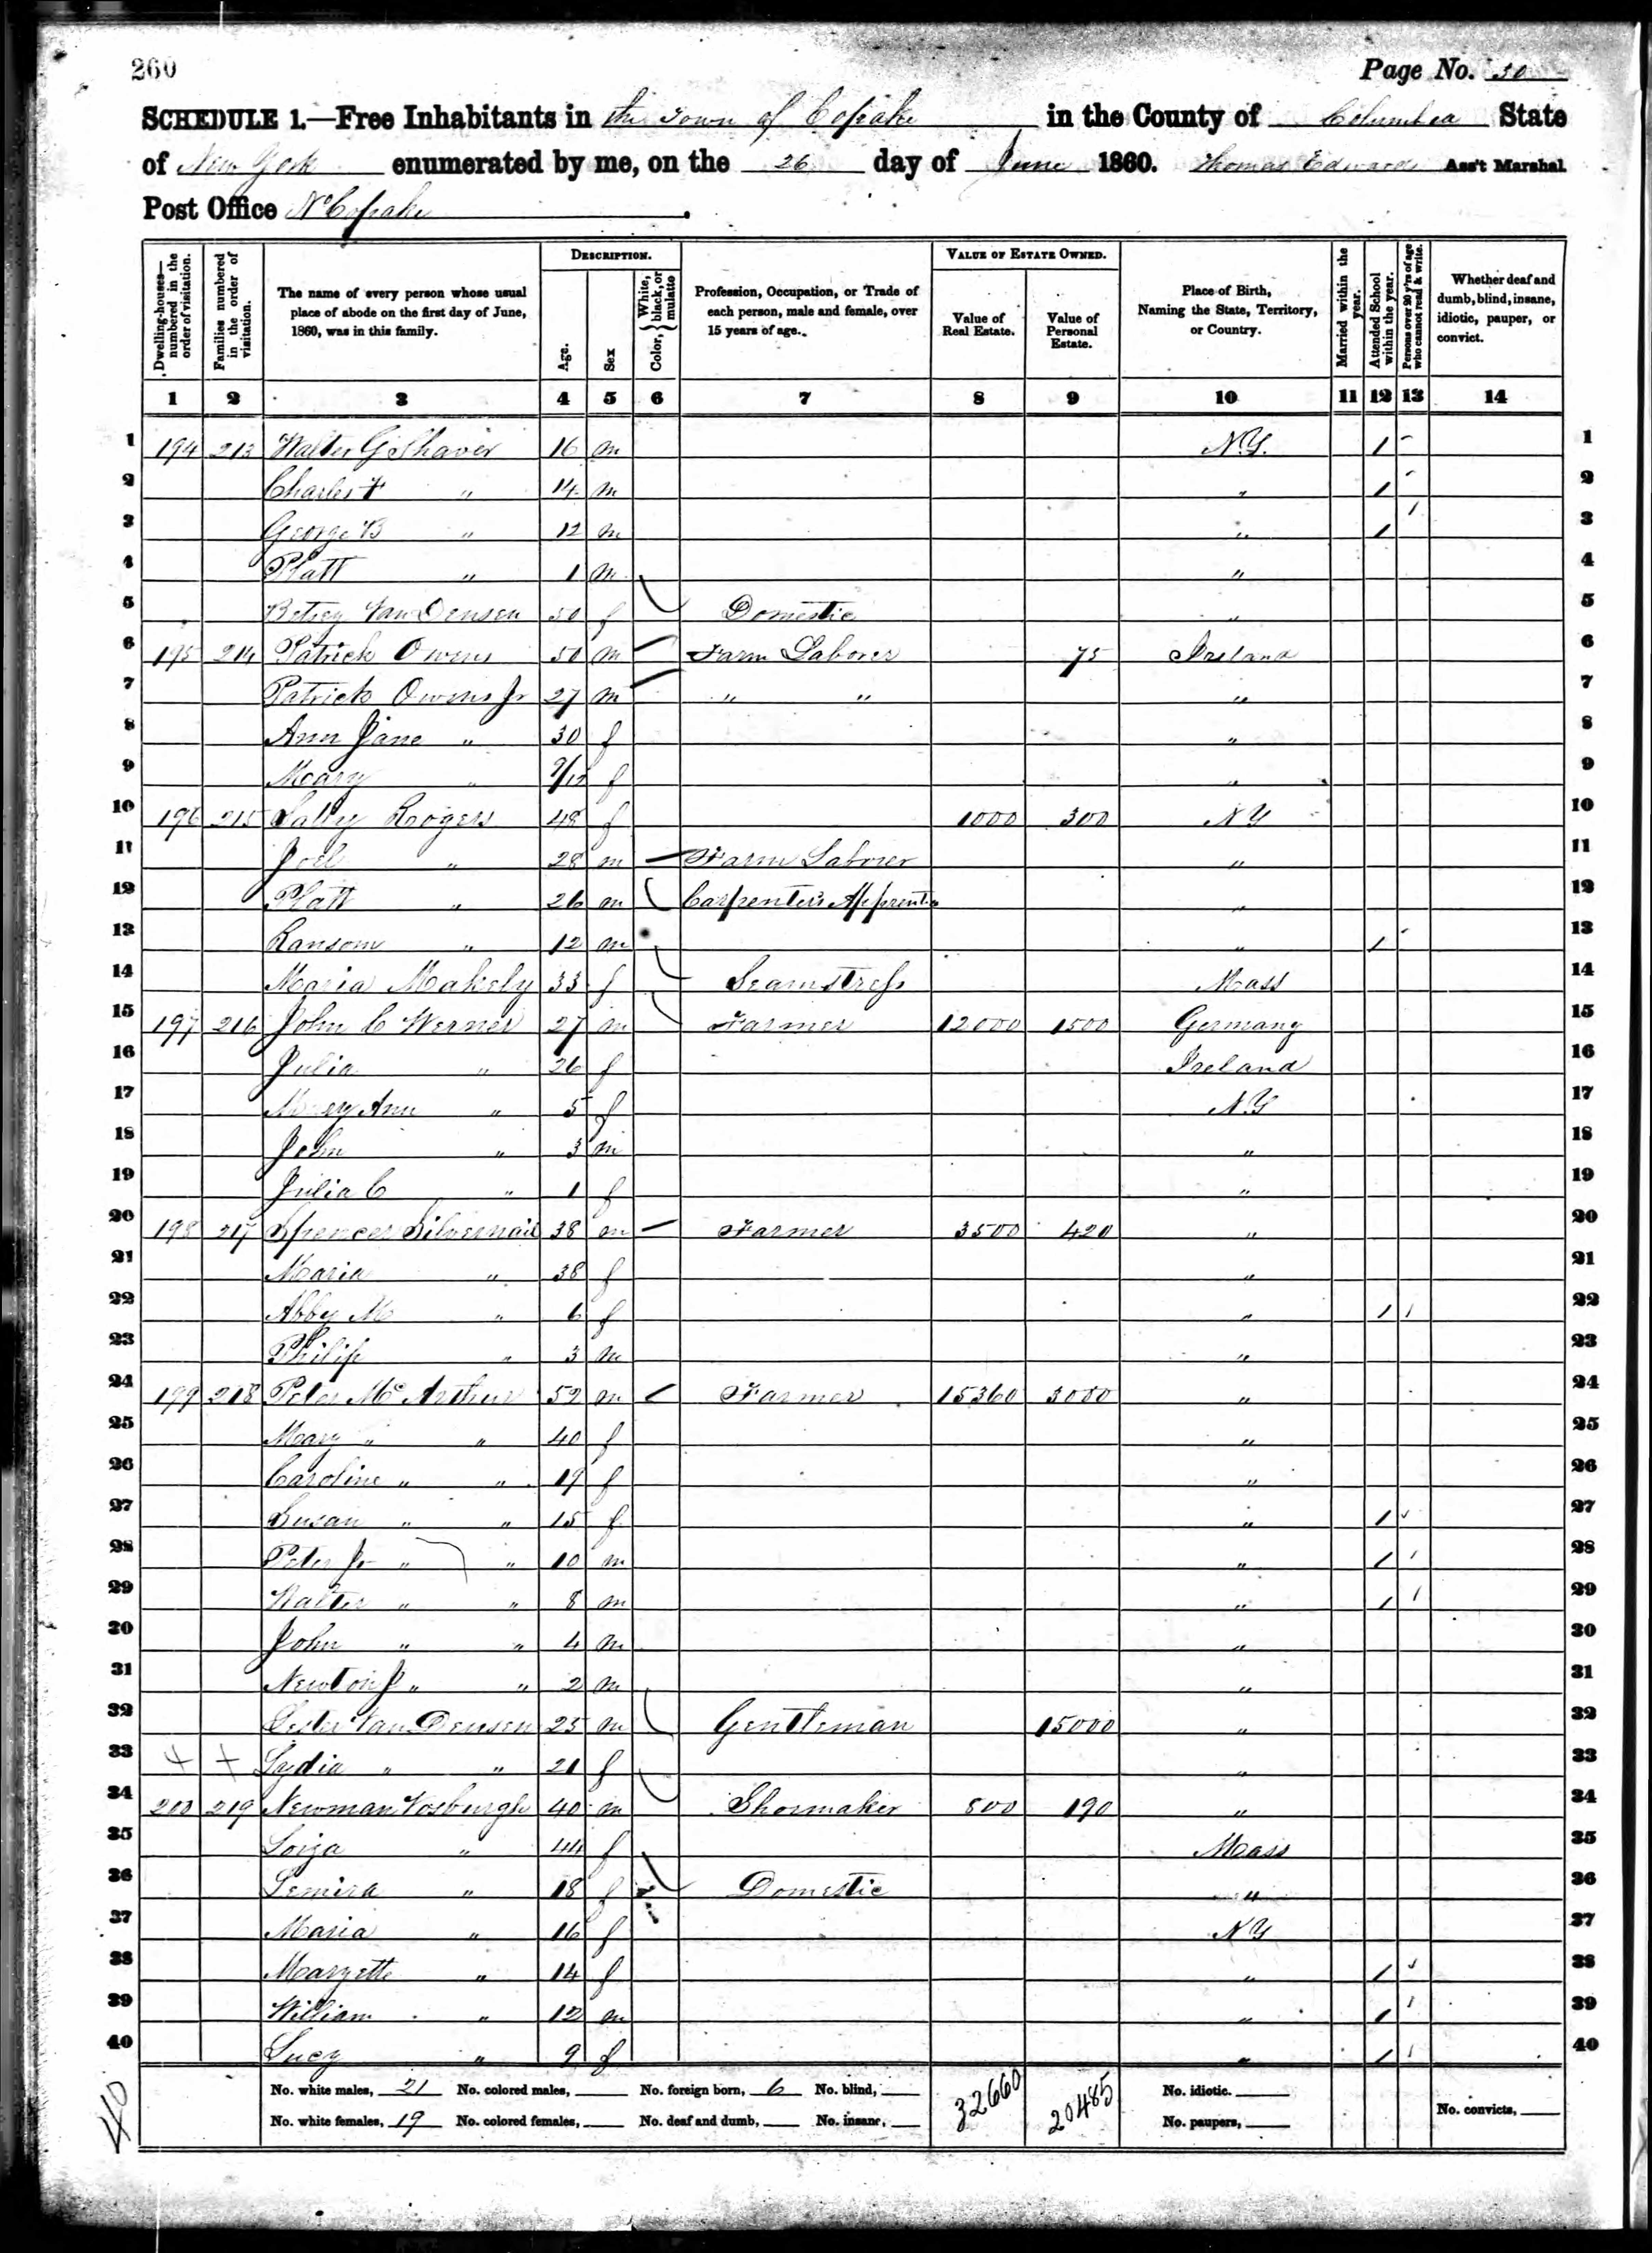 260
Page No. 30
SCHEDULE 1.—Free Inhabitants in the Town of Copake in the County of Columbia State
of New York enumerated by me, on the 26 day of June 1860. Thomas Edwards Ass't Marshal
Post Office N Copake.
DESCRIPTION. VALUE OF ESTATE OWNED.
Dwelling-houses—numbered in the order of visitation. Families numbered in the order of visitation. The name of every person whose usual place of abode on the first day of June, 1860, was in this family. Age. Sex Color, { White, black, or mulatto Profession, Occupation, or Trade of each person, male and female, over 15 years of age. Value of Real Estate. Value of Personal Estate. Place of Birth, Naming the State, Territory, or Country. Married within the year. Attended School within the year. Persons over 20 y'rs of age who cannot read & write. Whether deaf and dumb, blind, insane, idiotic, pauper, or convict.
1 2 3 4 5 6 7 8 9 10 11 12 13 14
1 194 213 Walter G Shaver 16 m N.Y. 1 1
2 Charles F " 14 m " 1 2
3 George B " 12 m " 1 3
4 Platt " 1 m " 4
5 Betsey Van Deusen 50 f Domestic " 5
6 195 214 Patrick Owens 50 m Farm Laborer 75 Ireland 6
7 Patrick Owens Jr 27 m " " " 7
8 Ann Jane " 30 f " 8
9 Mary " 9/12 f " 9
10 196 215 Sally Rogers 48 f 1000 300 N Y 10
11 Joel " 28 m Farm Laborer " 11
12 Platt " 26 m Carpenters Apprentice " 12
13 Ransom " 12 m " 1 13
14 Maria Makely 33 f Seamstress Mass 14
15 197 216 John C Werner 27 m Farmer 12000 1500 Germany 15
16 Julia " 26 f Ireland 16
17 Mary Ann " 5 f N.Y 17
18 John " 3 m " 18
19 Julia C " 1 f " 19
20 198 217 Spencer Silvernail 38 m Farmer 3500 420 " 20
21 Maria " 38 f " 21
22 Abby M " 6 f " 1 22
23 Philip " 3 m " 23
24 199 218 Peter Mc Arthur 52 m Farmer 15360 3000 " 24
25 Mary " " 40 f " 25
26 Caroline " " 19 f " 26
27 Susan " " 15 f " 1 27
28 Peter Jr " " 10 m " 1 28
29 Walter " " 8 m " 1 29
30 John " " 4 m " 30
31 Newton J " " 2 m " 31
32 Lester Van Deusen 25 m Gentleman 15000 " 32
33 + + Lydia " " 21 f " 33
34 200 219 Newman Vosburgh 40 m Shoemaker 800 190 " 34
35 Loiza " 44 f Mass 35
36 Lemira " 18 f Domestic " 36
37 Maria " 16 f N Y 37
38 Maryette " 14 f " 1 38
39 William " 12 m " 1 39
40 Lucy " 9 f " 1 40
40 No. white males, 21 No. colored males, No. foreign born, 6 No. blind, 32660 20485 No. idiotic.
No. white females, 19 No. colored females, No. deaf and dumb, No. insane, No. paupers, No. convicts,